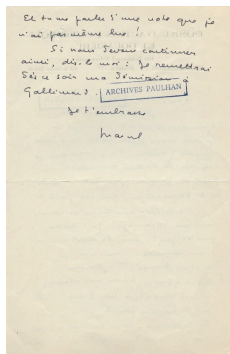 Et tu me parles d'une note que je
n'ai pas même lue !
Si nous devons continuer
ainsi, dis-le moi : je remettrai
dès ce soir ma démission à
Gallimard.
ARCHIVES PAULHAN
Je t'embrasse
Marcel